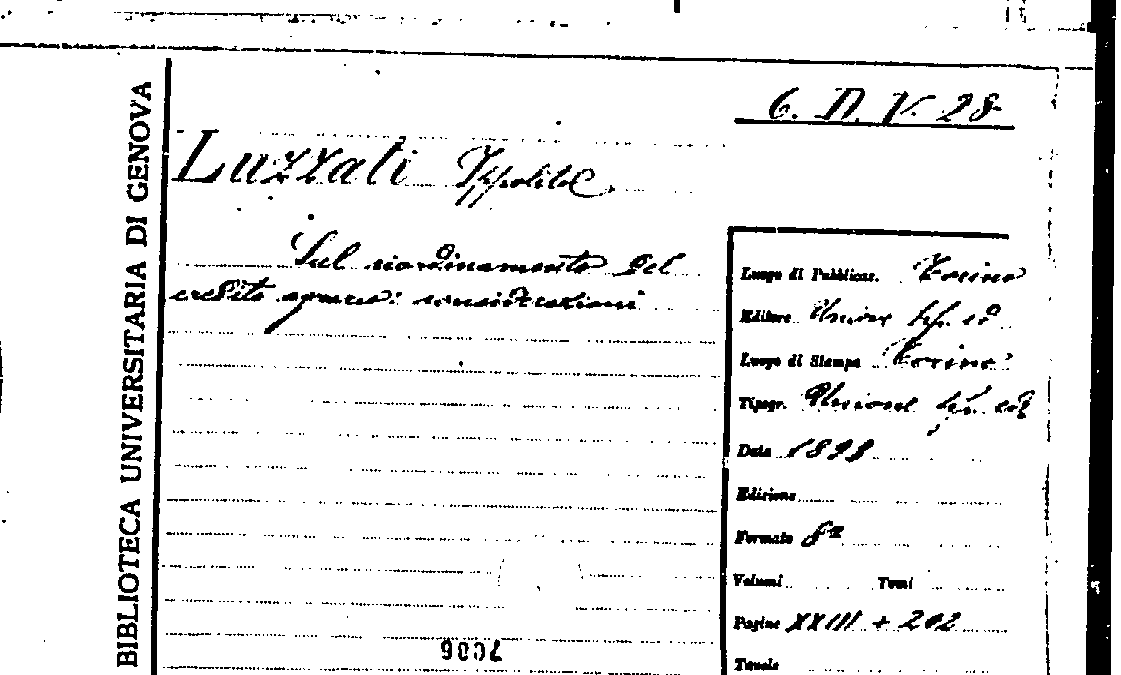 BIBLIOTECA UNIVERSITARIA DI GENOVA
6. D. V. 28
Luzzati Ippolito
Sul riordinamento del
credito agrario: considerazioni
Luogo di Pubblicaz. Torino
Editore Unione tip. ed
Luogo di Stampa Torino
Tipogr. Unione tip. ed
Data
Edizione
Formato 8º
Volumi Tomi
Pagine XXIII + 202
Tavole